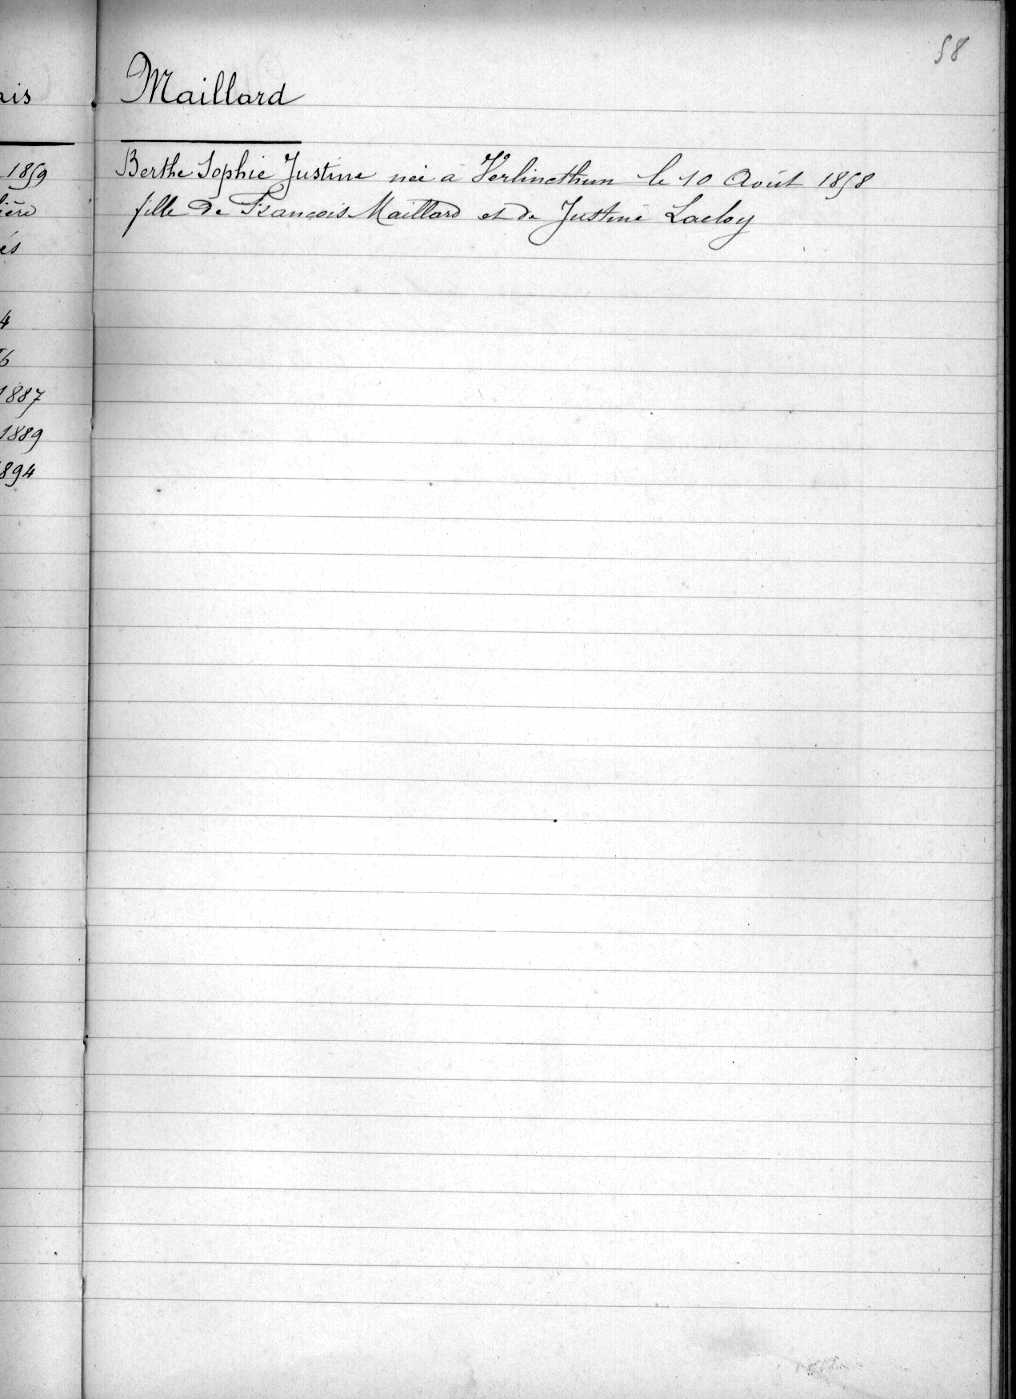 58
Maillard
Berthe Sophie Justine née à Verlincthun le 10 Août 1858
fille de François Maillard et de Justine Lacloy
ais
1859
ière
és
4
6
1887
1889
1894